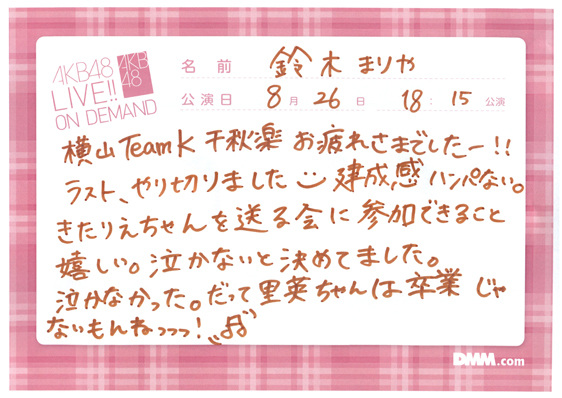 AKB48
LIVE!!
ON DEMAND
AKB
48
名前 鈴木まりや
公演日 8月26日 18:15公演
横山TeamK 千秋楽 お疲れさまでしたー!!
ラスト、やり切りました 建成感ハンパない。
きたりえちゃんを送る会に参加できること
嬉しい。泣かないと決めてました。
泣かなかった。だって里英ちゃんは卒業じゃ
ないもんねっっっ!
DMM.com